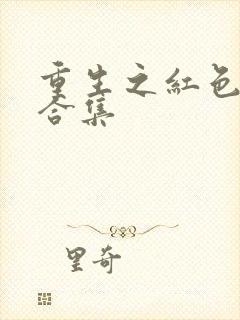 重生之红色
合集
里奇